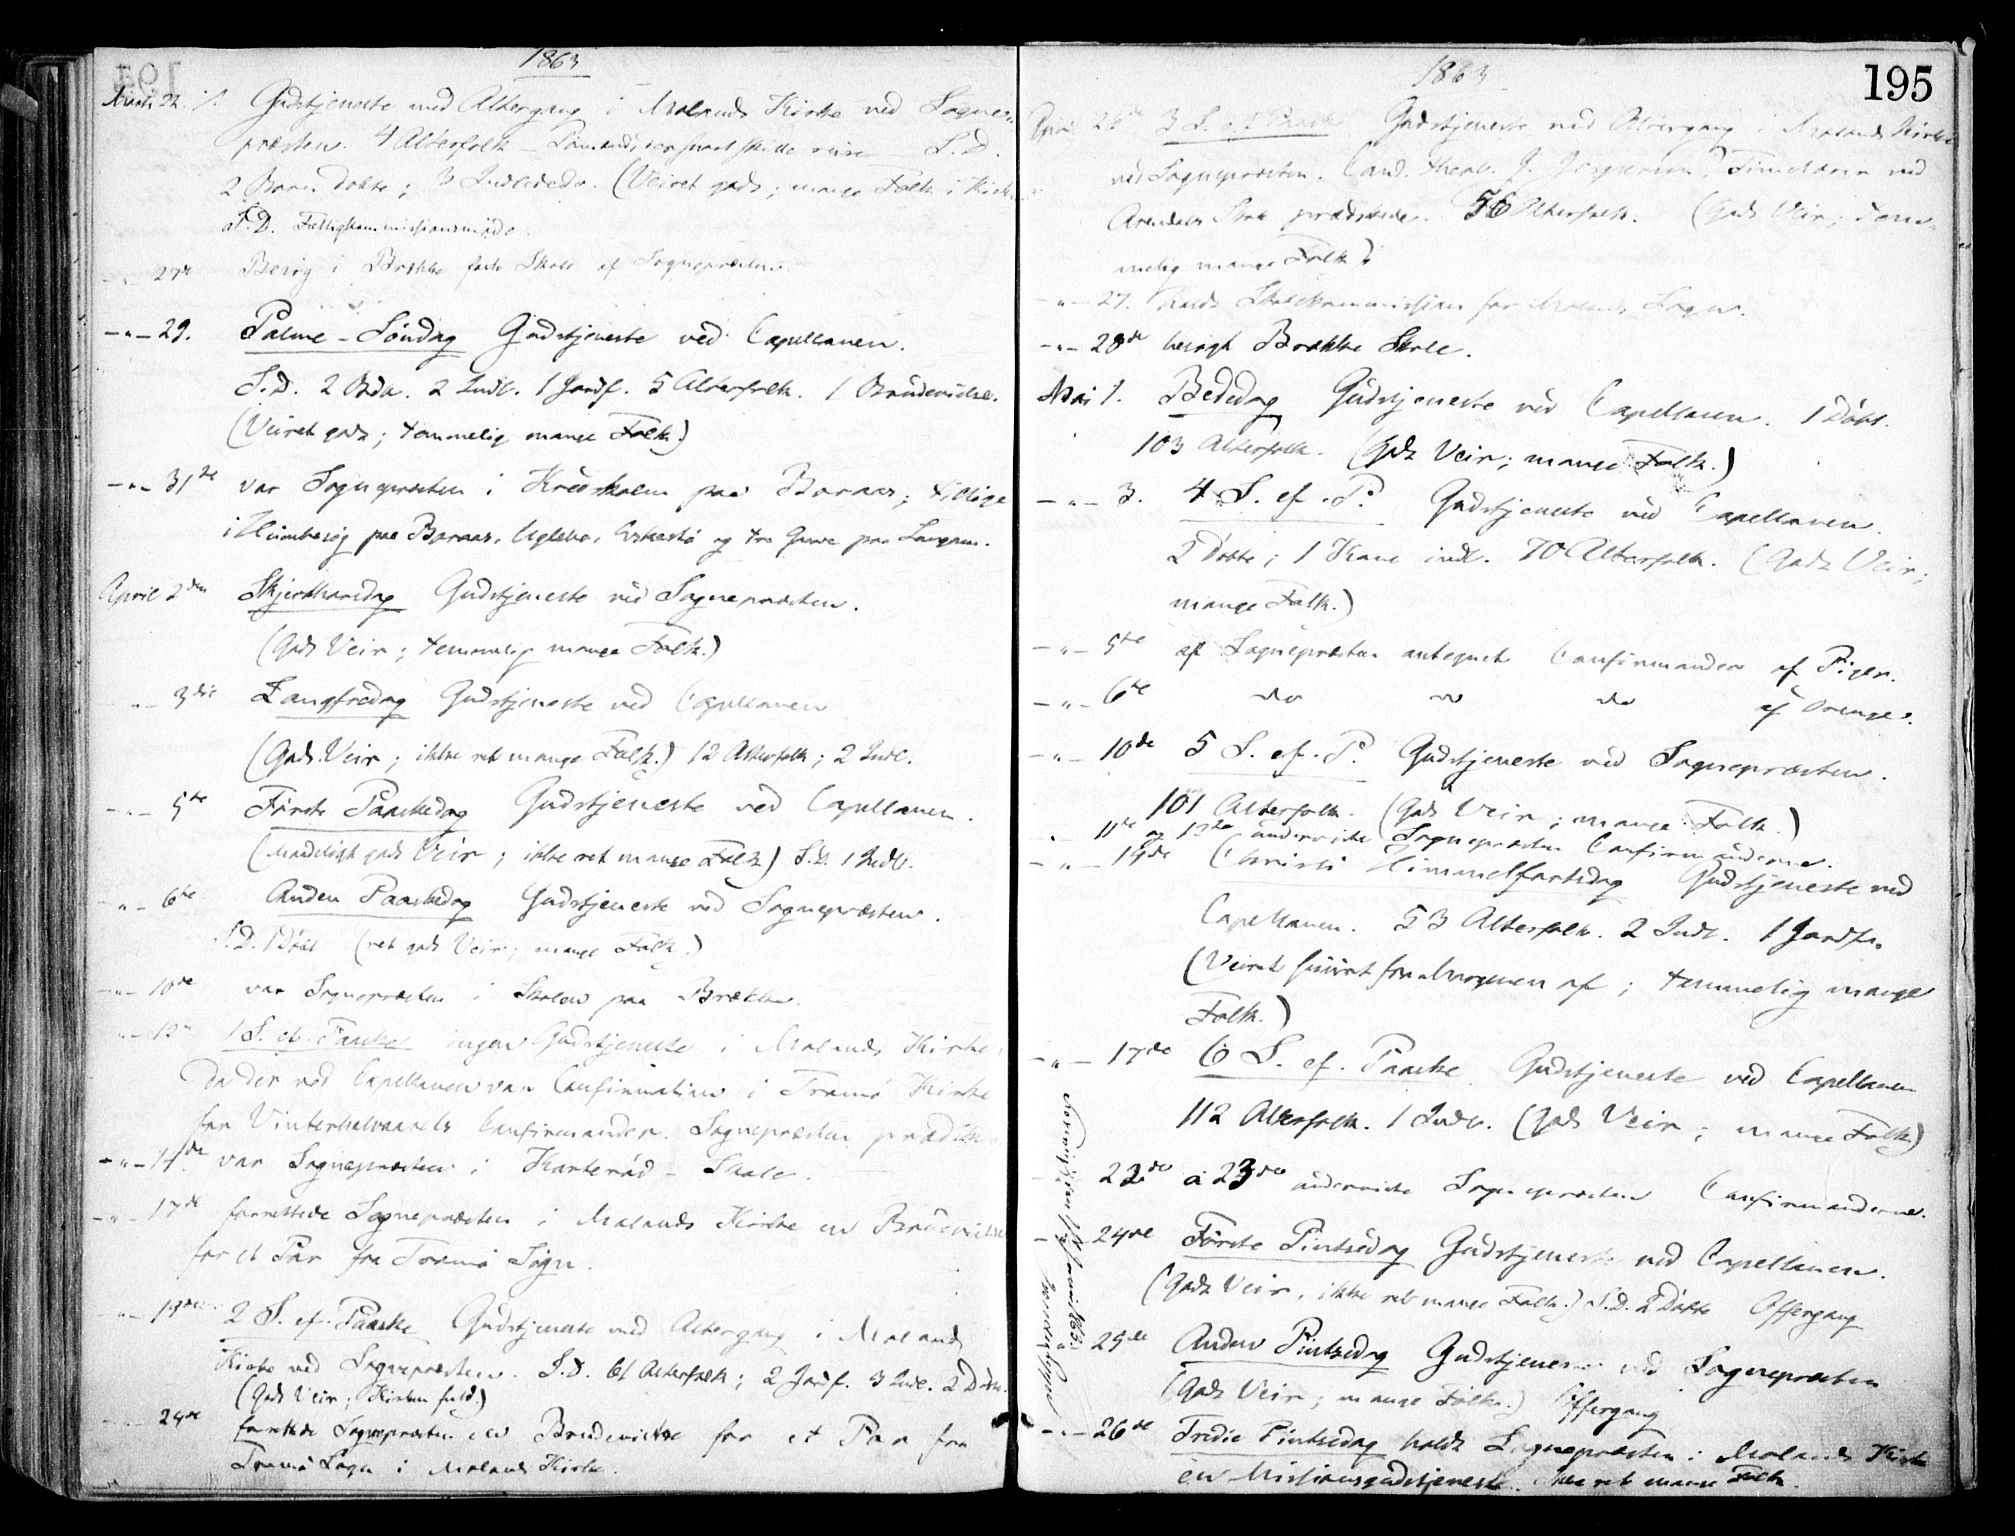 1863
Marts 22. Gudstjeneste med Altergang i Molands Kirke ved Sogne-
præsten. 4 Alterfolk S.D.
2 Børn døbte; 3 Indledede. (Veiret godt; mange Folk i Kirk
S.D. Fattigkommissionsmøde.
27de Besøg i Brække faste Skole af Sognepræsten.
-"- 29. Palme-Søndag Gudstjeneste ved Capellanen.
S.D. 2 Indl. 1 Jordf. 5 Alterfolk. 1 Brudevielse.
(Veiret godt; temmelig mange Folk.)
-"- 31te var Sognepræsten i Kredsskolen paa Boraas; tillige
i Huusbesøg paa Boraas, og tre Gaarde paa Langum.
April 2den Skjærthorsdag Gudstjeneste ved Sognepræsten.
(Godt Veir; temmelig mange Folk.)
-"- 3die Langfredag Gudstjeneste ved Capellanen
(Godt Veir; ikke ret mange Folk.) 12 Alterfolk; 2 Indl.
-"- 5te Første Paaskedag Gudstjeneste ved Capellanen.
(Maadeligt godt Veir; ikke ret mange Folk) S.D. 1 Indl.
-"- 6te Anden Paaskedag Gudstjeneste ved Sognepræsten.
S.D. 1 Døbt (ret godt Veir; mange Folk.)
-"- 10de var Sognepræsten i Skolen paa Brække.
-"- 12te 1 S. ef. Paaske ingen Gudstjeneste i Molands Kirke,
da der ved Capellanen var Confirmation i Tromø Kirke
for Vinterhalvaarets Confirmander. Sognepræsten prædik
-"- 14de var Sognepræsten i Skole.
-"- 17de forrettede Sognepræsten i Molands Kirke en Brudevielse
for et Par fra Tromø Sogn.
-"- 19de 2 S. ef. Paaske Gudstjeneste med Altergang i Molands
Kirke ved Sognepræsten. S.D. 61 Alterfolk; 2 Jordf. 3 Indl. 2 Døbte.
(Godt Veir; Kirken fuld.)
-"- 24de forrettede Sognepræsten en Brudevielse for et Par fra
Tromø Sogn i Molands Kirke.
1863
195
April 26de 3 S. ef. Paaske Gudstjeneste med Altergang i Molands Kirke
ved Sognepræsten. Cand. theol. J. Jespersen, Timelærer ved
Arendals Skole prædikede. 56 Alterfolk. (Godt Veir; tem-
melig mange Folk.)
-"- 27. holdt Skolekommissjon for Molands Sogn.
-"- 28de besøgt Brække Skole.
Mai 1. Bededag Gudstjeneste ved Capellanen. 1 Døbt.
103 Alterfolk. (Godt Veir; mange Folk.)
-"- 3. 4 S. ef. P. Gudstjeneste ved Capellanen.
2 Døbte; 1 Kone indl. 70 Alterfolk. (Godt Veir;
mange Folk.)
-"- 5te af Sognepræsten antegnet Confirmander af Piger.
-"- 6te do do do af Drenge.
-"- 10de 5 S. ef. P. Gudstjeneste ved Sognepræsten.
101 Alterfolk. (Godt Veir; mange Folk.)
11te og 12te underviste Sognepræsten Confirmanderne.
-"- 14de Christi Himmelfartsdag Gudstjeneste ved
Capellanen. 53 Alterfolk. 2 Indl. 1 Jordf.
(Veiret suurt fra Morgenen af; temmelig mange
Folk.)
-"- 17de 6 S. ef. Paaske Gudstjeneste ved Capellanen
112 Alterfolk. 1 Indl. (Godt Veir; mange Folk.)
22de à 23de underviste Sognepræsten Confirmanderne.
24de Første Pintsedag Gudstjeneste ved Capellanen.
(Godt Veir, ikke ret mange Folk.) S.D. 2 Døbte Offergang
25de Anden Pintsedag Gudstjeneste ved Sognepræsten
(Godt Veir; mange Folk.) Offergang
-"- 26de Tredie Pintsedag holdt Sognepræsten i Molands Kirke
en Missionsgudstjeneste. Ikke ret mange Folk.